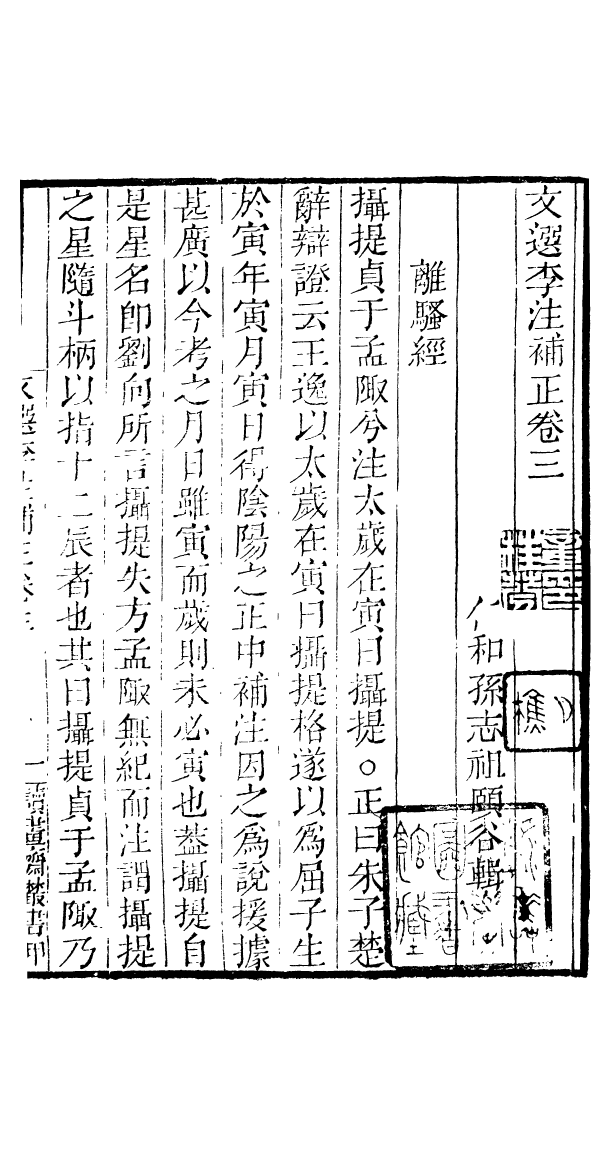 文選李注補正卷三
仁和孫志祖頤谷輯
離騷經
攝提貞于孟陬兮注太歲在寅曰攝提○正曰朱子楚
辭辯證云王逸以太歲在寅曰攝提格遂以爲屈子生
於寅年寅月寅日得陰陽之正中補注因之爲說援據
甚廣以今考之月日雖寅而歲則未必寅也蓋攝提自
是星名即劉向所言攝提失方孟陬無紀而注謂攝提
之星隨斗柄以指十二辰者也其曰攝提貞于孟陬乃
文選李注補正卷三
一
讀畫齋叢書甲